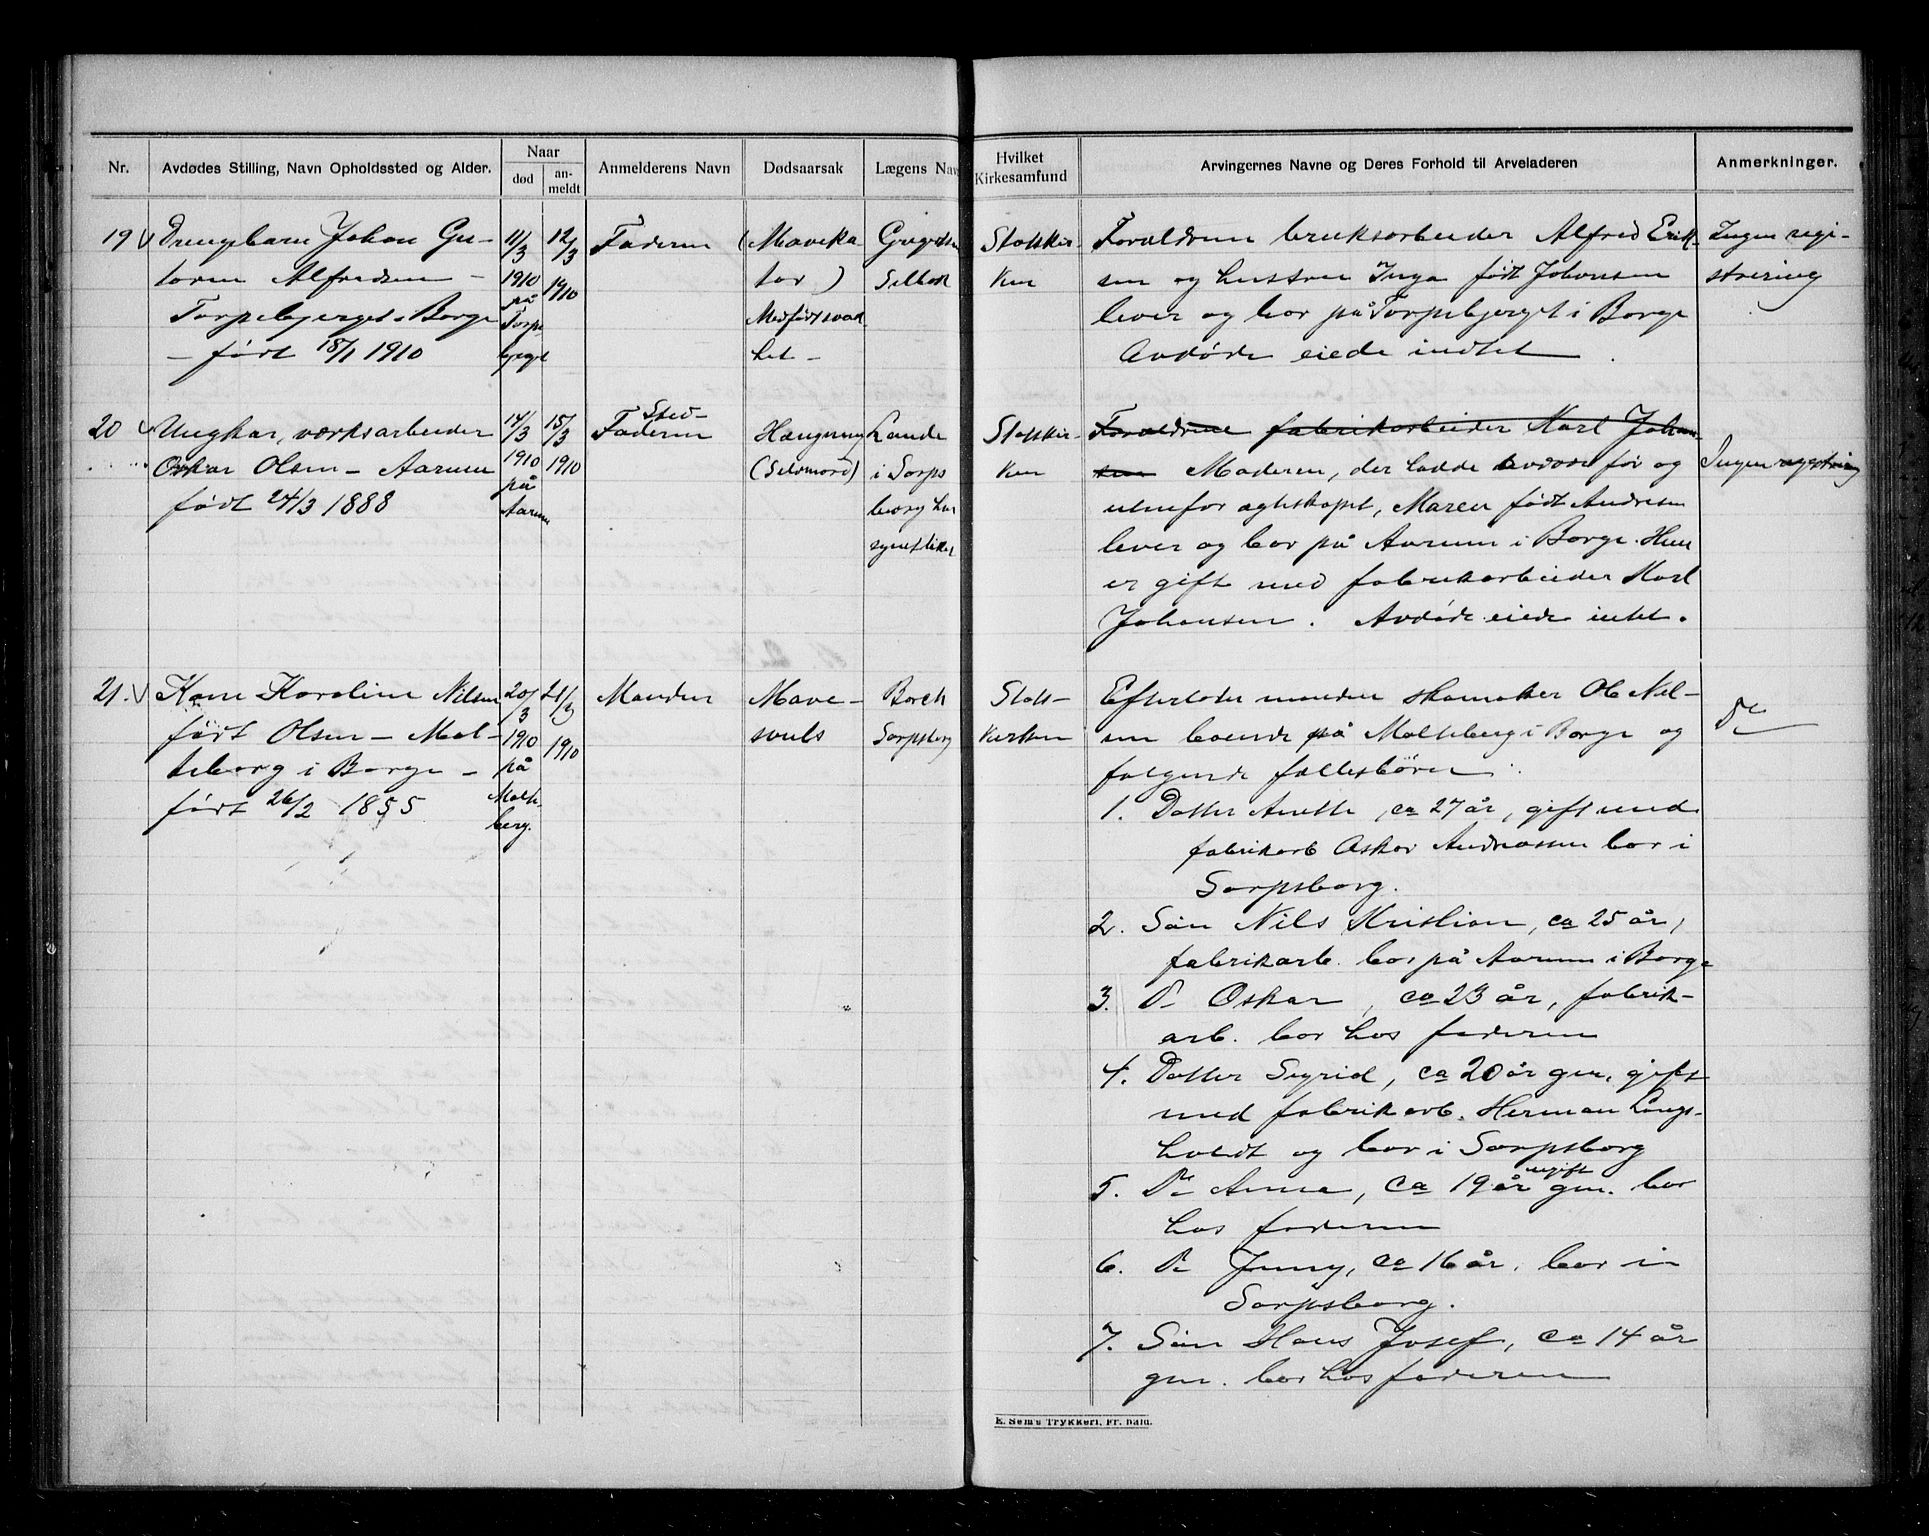 Nr.
Avdødes Stilling, Navn Opholdssted og Alder.
Naar
død
an-
meldt
Anmelderens Navn
Dødsaarsak
Lægens Nav
Hvilket
Kirkesamfund
Arvingernes Navne og Deres Forhold til Arveladeren
Anmerkninger.
19
Drengebarn Johan Gu-
torm Alfredsen -
Torpebjerget i Borge
- født 18/1 1910
11/3
1910
på
Torpe
bjerget
12/3
1910
Faderen
(Maveka
tar)
Medfødt svak
het -
Gregersen
Sellebak
Statskir
ken
Forældrene bruksarbeider Alfred Erik-
sen og hustru Inga født Johansen
lever og bor på Torpebjerget i Borge
Avdøde eiede indtet.
Ingen regi-
strering
20
Ungkar, værksarbeider
Oskar Olsen - Aarum
født 24/3 1888
14/3
1910
på
Aarum
15/3
1910
Sted-
Faderen
Hængning
(Selvmord)
Lande
i Sarps
borg har
synet liket
Statskir
ken
Forældrene fabrikarbeider Karl Johan-
sen Moderen, der hadde avdøde før og
utenfor ægteskapet, Maren født Andresen
lever og bor på Aarum i Borge. Hun
er gift med fabrikarbeider Karl
Johansen. Avdøde eiede intet.
Ingen registrering
21.
Kone Karoline Nilsen
født Olsen - Mol-
teberg i Borge -
født 26/2 1855
20/3
1910
på
Molte
berg.
21/3
1910
Manden
Mave-
svuls
Borch
Sarpsborg
Stats-
kirken
Efterlater manden skomaker Ole Nil-
sen boende på Molteberg i Borge og
følgende fællesbørn:
1. Datter Anette, ca 27 år, gift med
fabrikarb Oskar Andreassen bor i
Sarpsborg.
2. Søn Nils Kristian, ca 25 år,
fabrikarb. bor på Aarum i Borge
3. Do Oskar, ca 23 år, fabrik-
arb. bor hos faderen
4. Datter Sigrid, ca 20 år gm. gift
med fabrikarb. Herman Langs-
holdt og bor i Sarpsborg
5. Do Anna, ca 19 år ugift gm. bor
hos faderen
6. Do Jenny, ca 16 år, bor i
Sarpsborg.
7. Søn Hans Josef, ca 14 år
gm. bor hos faderen
Do
E. Sem's Trykkeri, Fr. hald.